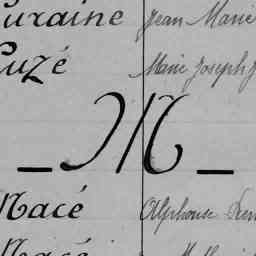 Luraine Jean Marie
Luzé Marie Joseph J
_ M _
Macé Alphonse
Macé